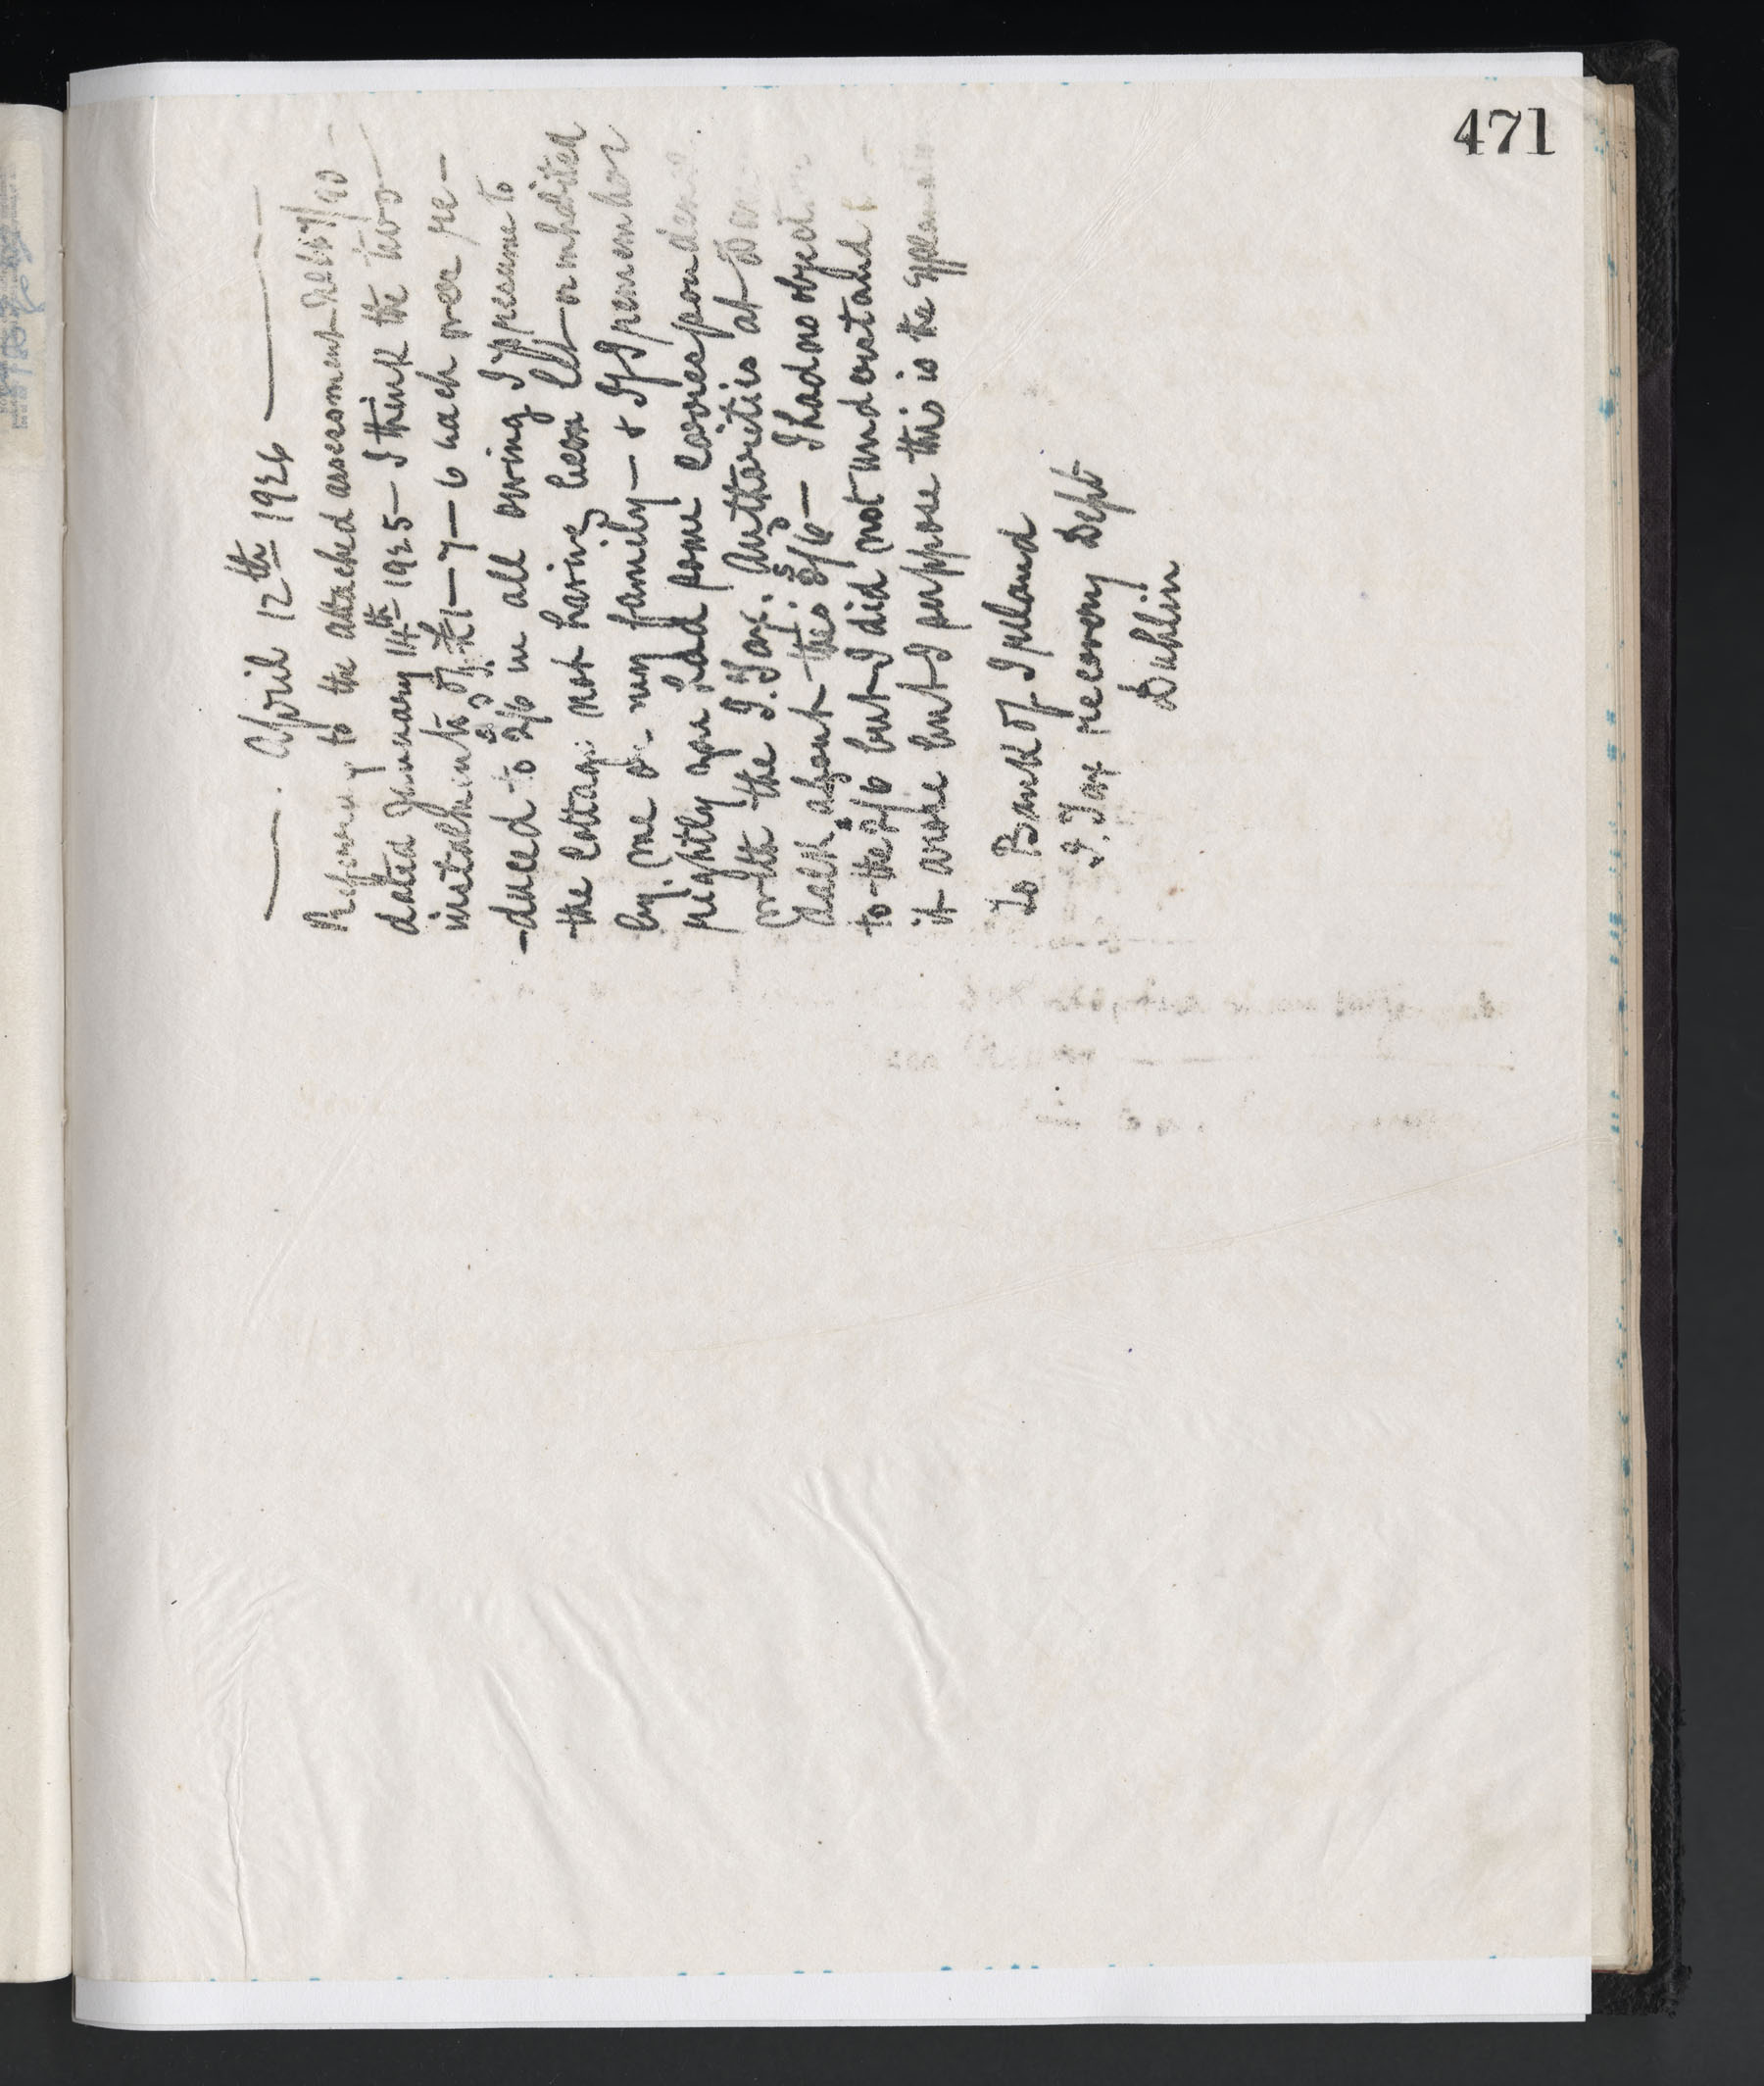 471
April 12th 1926
Referring to the attached assessment
dated January 14th 1925 – I think the two
instalments of £1 – 7 – 6 each were re-
-duced to 2/6 in all owing I presume to
the cottage not having been let or inhabited
by me or my family – & If I remember
rightly you had some correspondence
with the I. Tax. Authorities at
about this 2/6 – I had no object
to the 2/6 but I did not understand
it arose but I suppose this is the
To Bank of Ireland
I. Tax recovery Dept
Dublin